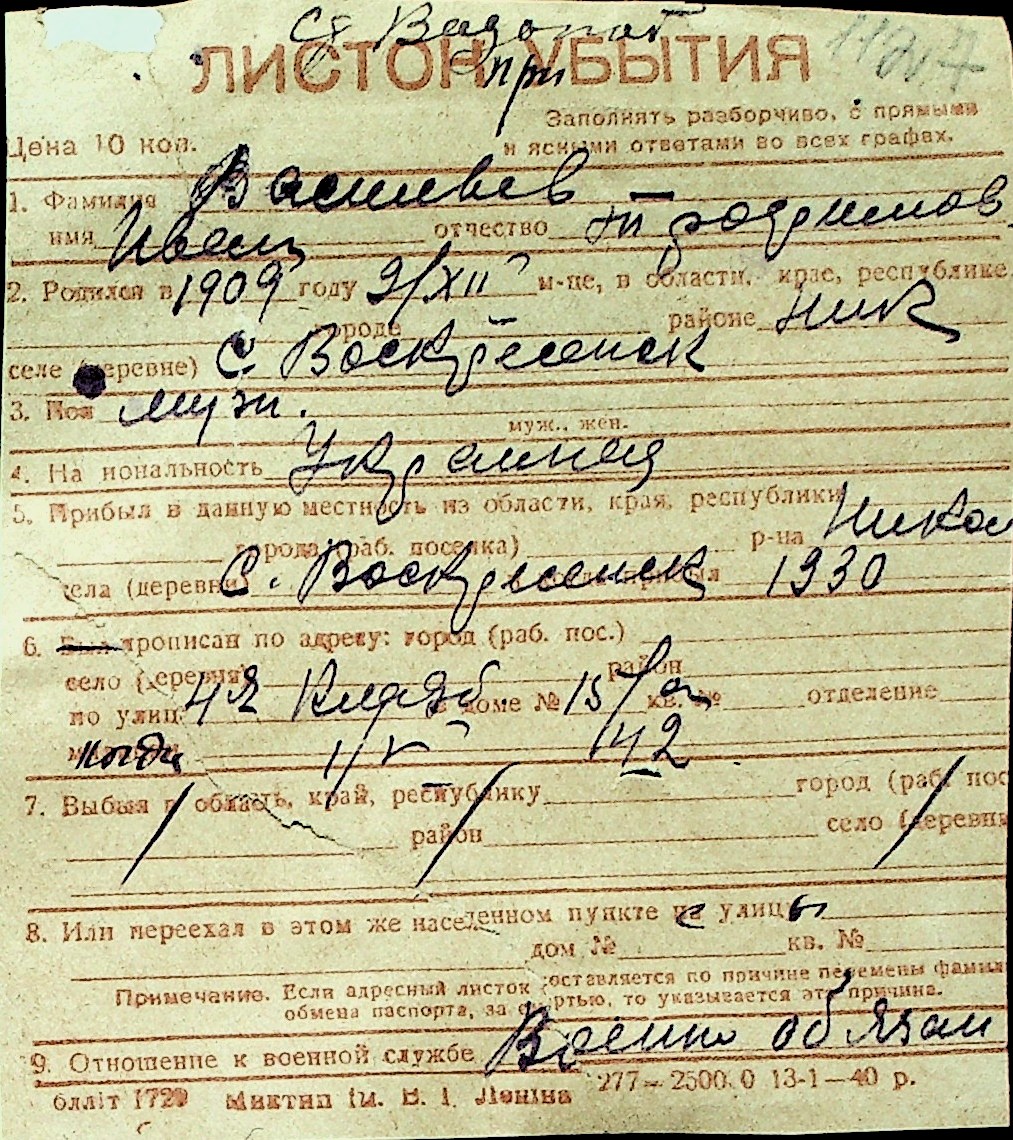 ЛИСТОК УБЫТИЯ
Заполнять разборчиво, с прямыми
Цена 10 коп.
и ясными ответами во всех графах.
1. Фамилия Васильев
имя Иван отчество
2. Родился в 1909 году 9/XII м-це, в области, крае, республике
городе районе Ник
селе (деревне) с. Воскресенск
3. Пол муж.
муж., жен.
4. Национальность Украинец
5. Прибыл в данную местность из области, края, республики
города (раб. поселка) р-на Никол
села (деревни) с. Воскресенск 1930
6. Был прописан по адресу: город (раб. пос.)
село (деревня) район
по улице 4я в доме № 15/а кв. № отделение
когда 1/V 42
7. Выбыл в область, край, республику город (раб. пос
район село (деревни
8. Или переехал в этом же населенном пункте на улицы
дом № кв. №
Примечание. Если адресный листок составляется по причине перемены фамили
обмена паспорта, за смертью, то указывается эта причина.
9. Отношение к военной службе Военно обязан
277–2500.0 13-1–40 р.
блліт 1729 Миктип ім. В. І. Леніна